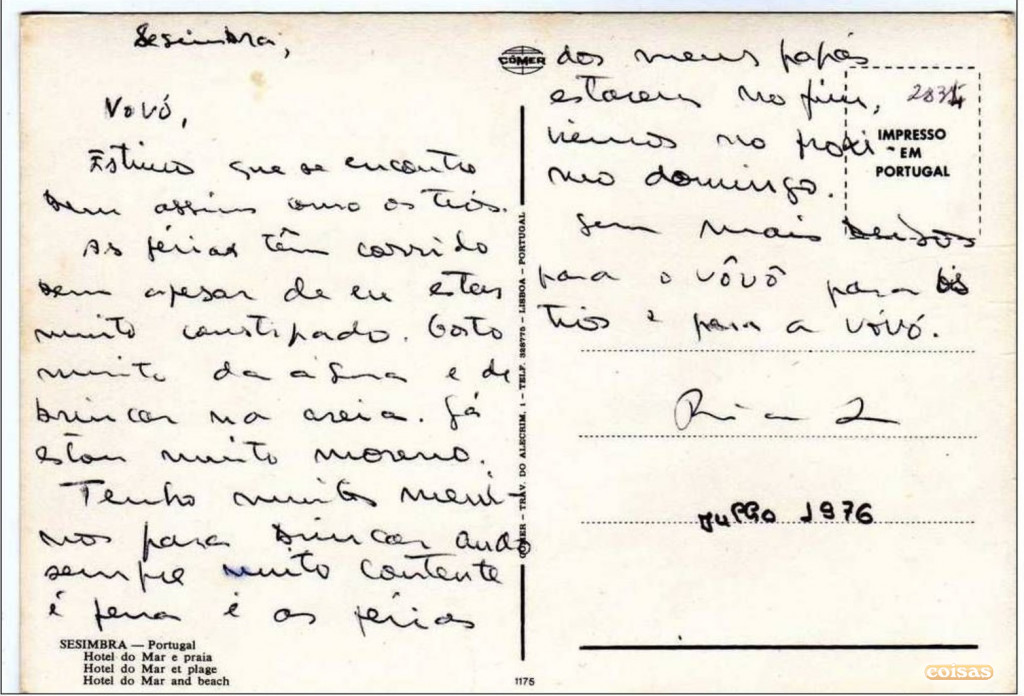 Sesimbra,
Vovó,
Estimo que se encontre
bem assim como os tios.
As férias têm corrido
bem apesar de eu estar
muito constipado. Gosto
muito da água e de
brincar na areia. Já
estou muito moreno.
Tenho muitos meni-
nos para brincar ando
sempre muito contente
é pena é as férias
SESIMBRA — Portugal
Hotel do Mar e praia
Hotel do Mar et plage
Hotel do Mar and beach
CÓMER
COMER - TRAV. DO ALECRIM, 1 - TELF. 328775 - LISBOA - PORTUGAL
1175
dos meus papás
estarem no fim,
viemos no proxi-
mo domingo.
Sem mais beijos
para o vôvô para os
tios e para a vóvó.
IMPRESSO
EM
PORTUGAL
Julho 1976
coisas